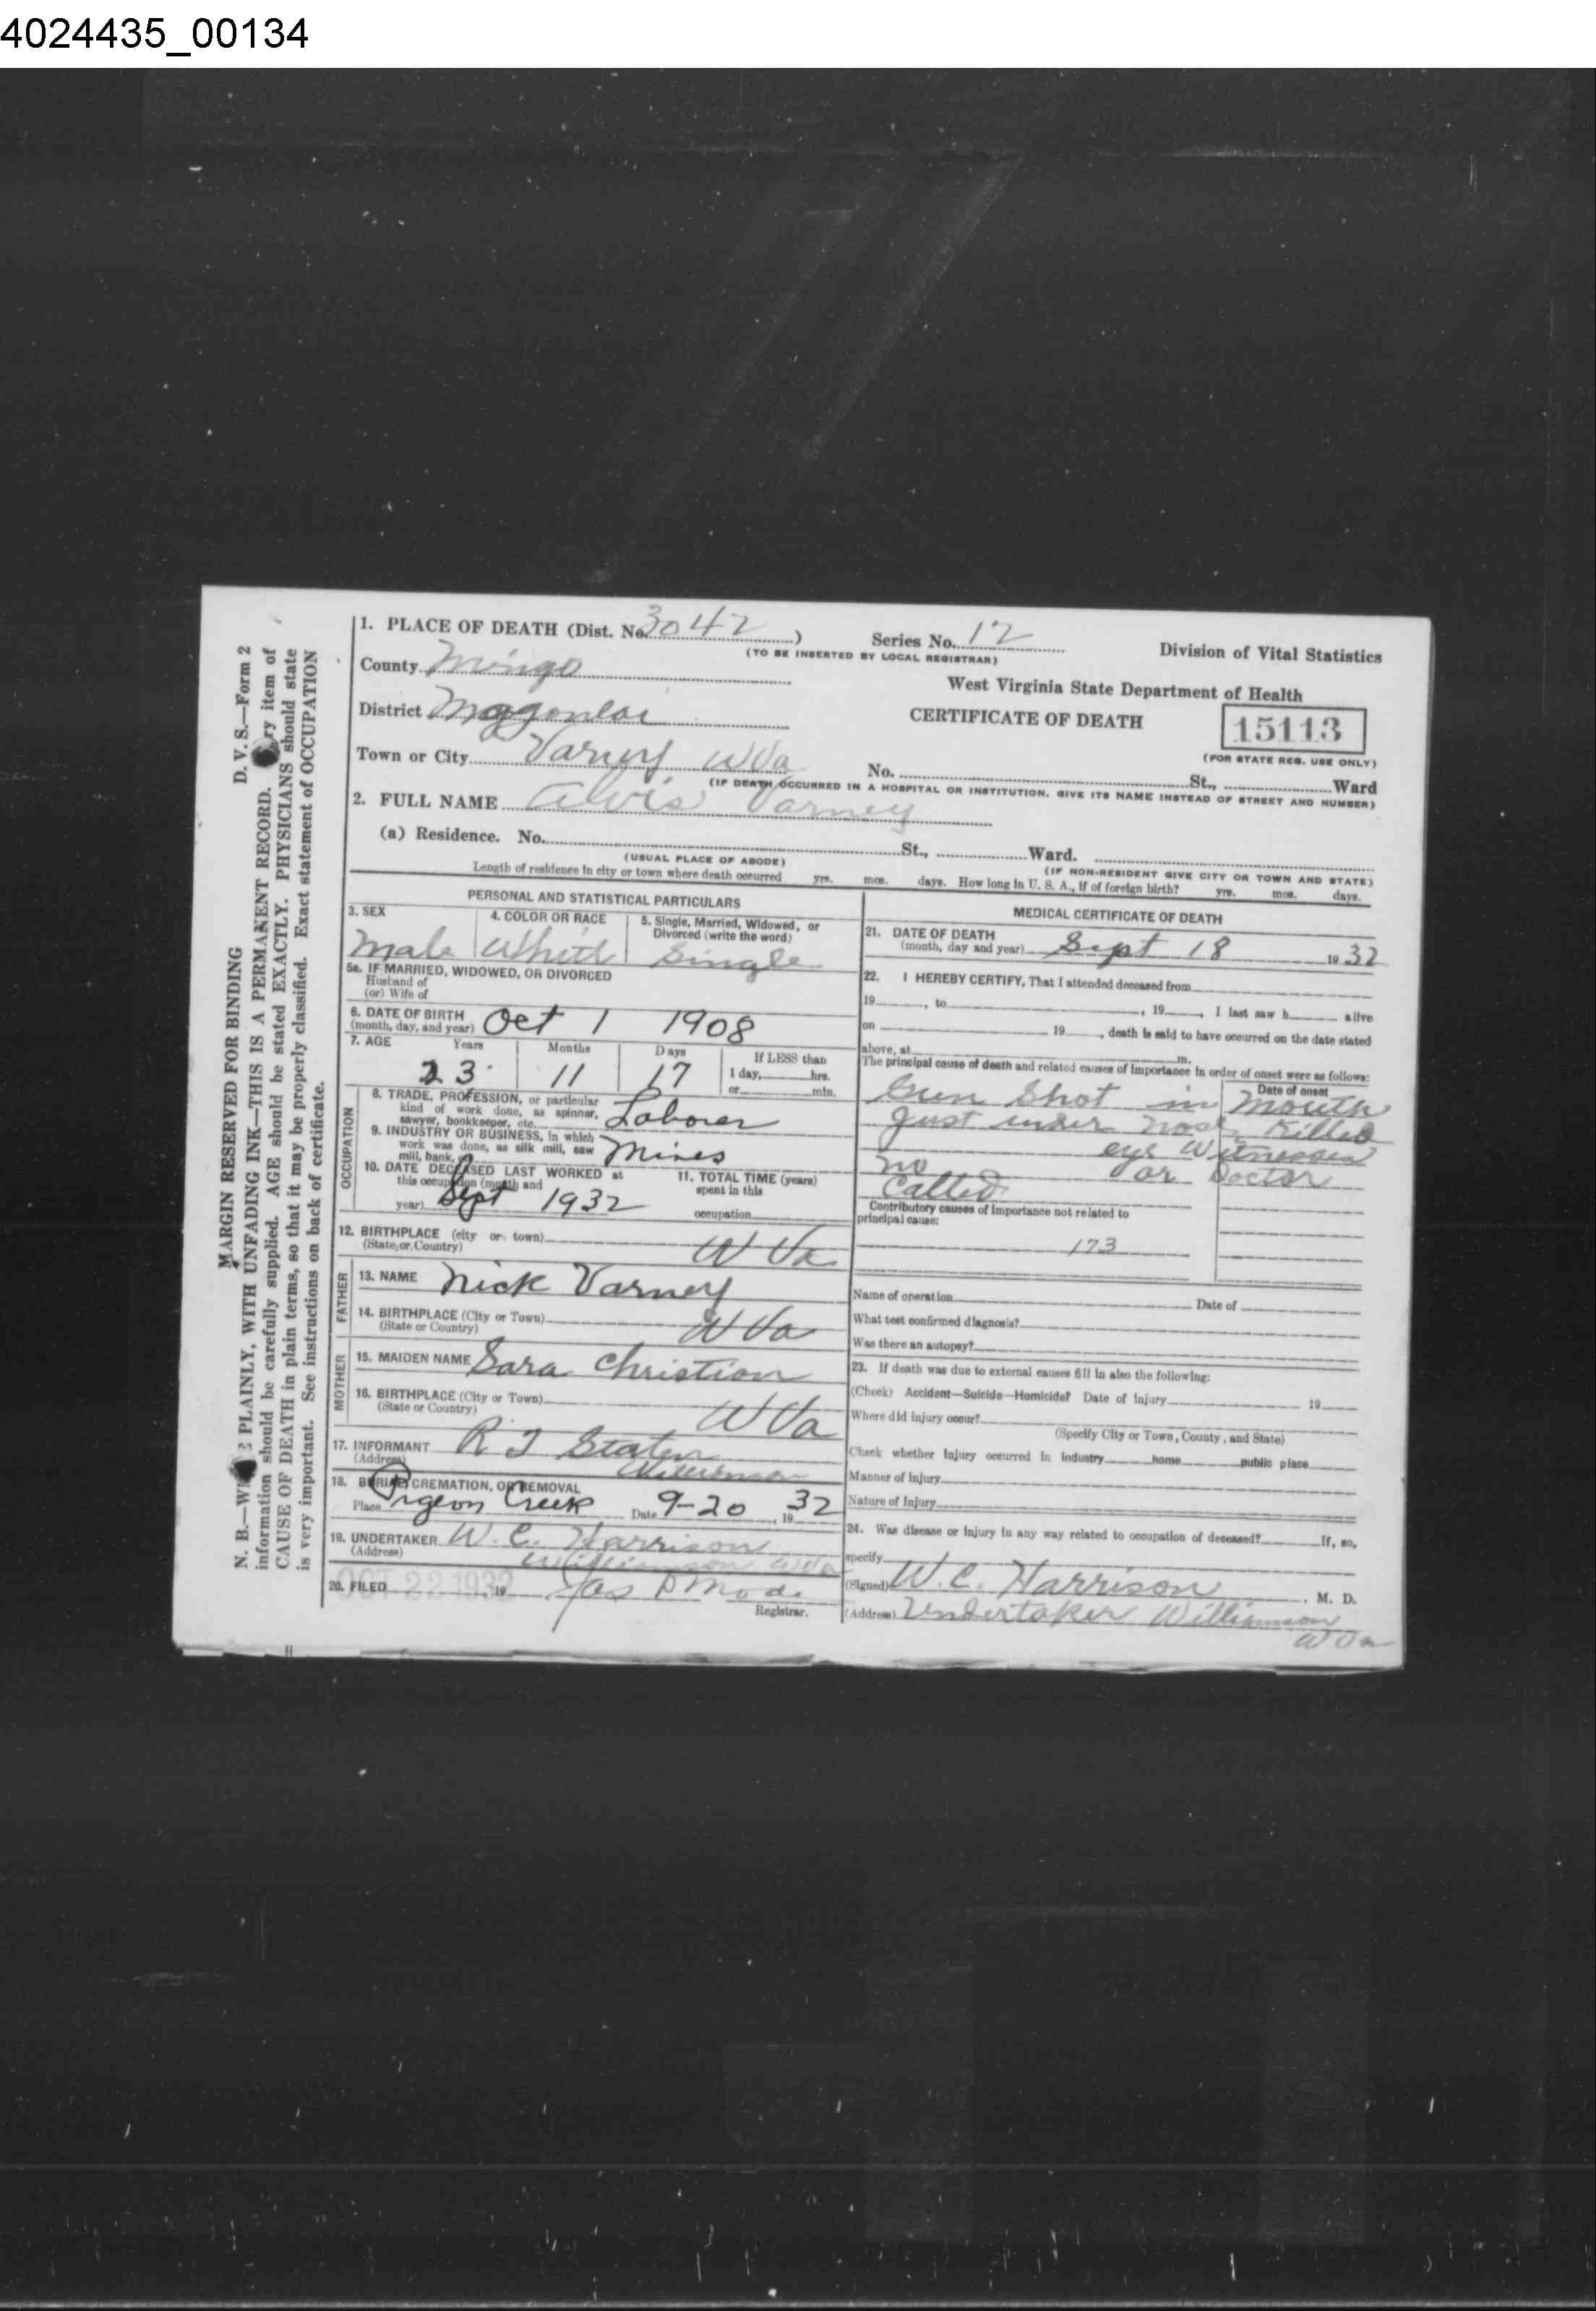 4024435_00134
MARGIN RESERVED FOR BINDING D. V. S.—Form 2
N. B.— PLAINLY, WITH UNFADING INK—THIS IS A PERMANENT RECORD. item of
information should be carefully supplied. AGE should be stated EXACTLY. PHYSICIANS should state
CAUSE OF DEATH in plain terms, so that it may be properly classified. Exact statement of OCCUPATION
is very important. See instructions on back of certificate.
1. PLACE OF DEATH (Dist. No. 3042) Series No. 12
(TO BE INSERTED BY LOCAL REGISTRAR)
Division of Vital Statistics
County Mingo
West Virginia State Department of Health
District
CERTIFICATE OF DEATH 15113
(FOR STATE REG. USE ONLY)
Town or City Varney W Va No. St., Ward
(IF DEATH OCCURRED IN A HOSPITAL OR INSTITUTION, GIVE ITS NAME INSTEAD OF STREET AND NUMBER)
2. FULL NAME Alvis Varney
(a) Residence. No. St., Ward.
(USUAL PLACE OF ABODE) (IF NON-RESIDENT GIVE CITY OR TOWN AND STATE)
Length of residence in city or town where death occurred yrs. mos. days. How long in U. S. A., if of foreign birth? yrs. mos. days.
PERSONAL AND STATISTICAL PARTICULARS
3. SEX 4. COLOR OR RACE 5. Single, Married, Widowed, or
Divorced (write the word)
Male White Single
5a. IF MARRIED, WIDOWED, OR DIVORCED
Husband of
(or) Wife of
6. DATE OF BIRTH
(month, day, and year) Oct 1 1908
7. AGE Years Months Days If LESS than
1 day, hrs.
or min.
23 11 17
OCCUPATION
8. TRADE, PROFESSION, or particular
kind of work done, as spinner,
sawyer, bookkeeper, etc. Laborer
9. INDUSTRY OR BUSINESS, in which
work was done, as silk mill, saw
mill, bank, Mines
10. DATE DECEASED LAST WORKED at
this occupation (month and
year) Sept 1932
11. TOTAL TIME (years)
spent in this
occupation
12. BIRTHPLACE (city or town)
(State or Country) W Va
FATHER
13. NAME Nick Varney
14. BIRTHPLACE (City or Town)
(State or Country) W Va
MOTHER
15. MAIDEN NAME Sara Christion
16. BIRTHPLACE (City or Town)
(State or Country) W Va
17. INFORMANT R J Staten
(Address) Williamson
18. BURIAL, CREMATION, OR REMOVAL
Place Pigeon Creek Date 9-20, 1932
19. UNDERTAKER W. C. Harrison
(Address) Williamson W Va
20. FILED OCT 22 1932 19 Jas P Mode
Registrar.
MEDICAL CERTIFICATE OF DEATH
21. DATE OF DEATH
(month, day and year) Sept 18 19 32
22. I HEREBY CERTIFY, That I attended deceased from
19 , to , 19 , I last saw h alive
on 19 , death is said to have occurred on the date stated
above, at m.
The principal cause of death and related causes of importance in order of onset were as follows:
Date of onset
Gun Shot in Mouth
Just under nose Killed
no eye Witnesses
or Doctor
Called
Contributory causes of importance not related to
principal cause:
173
Name of operation Date of
What test confirmed diagnosis?
Was there an autopsy?
23. If death was due to external causes fill in also the following:
(Check) Accident—Suicide—Homicide? Date of injury 19
Where did injury occur?
(Specify City or Town, County, and State)
Check whether injury occurred in industry home public place
Manner of Injury
Nature of Injury
24. Was disease or injury in any way related to occupation of deceased? If, so,
specify
(Signed) W. C. Harrison, M. D.
(Address) Undertaker Williamson
W Va